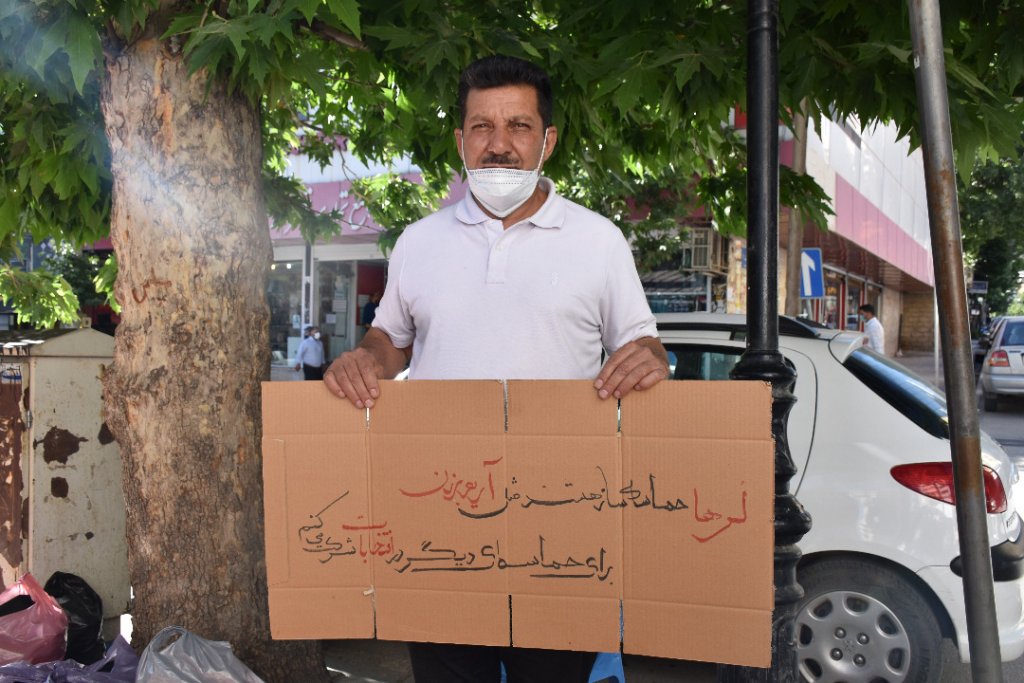 لرها حماسه‌ساز هستند مثل آریوبرزن
برای حماسه‌ای دیگر در انتخابات شرکت می‌کنم